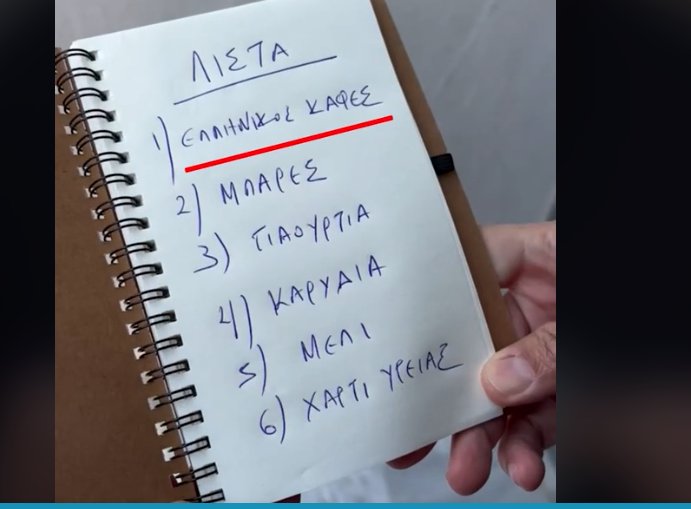 ΛΙΣΤΑ
1) ΕΛΛΗΝΙΚΟΣ ΚΑΦΕΣ
2) ΜΠΑΡΕΣ
3) ΓΙΑΟΥΡΤΙΑ
4) ΚΑΡΥΔΙΑ
5) ΜΕΛΙ
6) ΧΑΡΤΙ ΥΓΕΙΑΣ